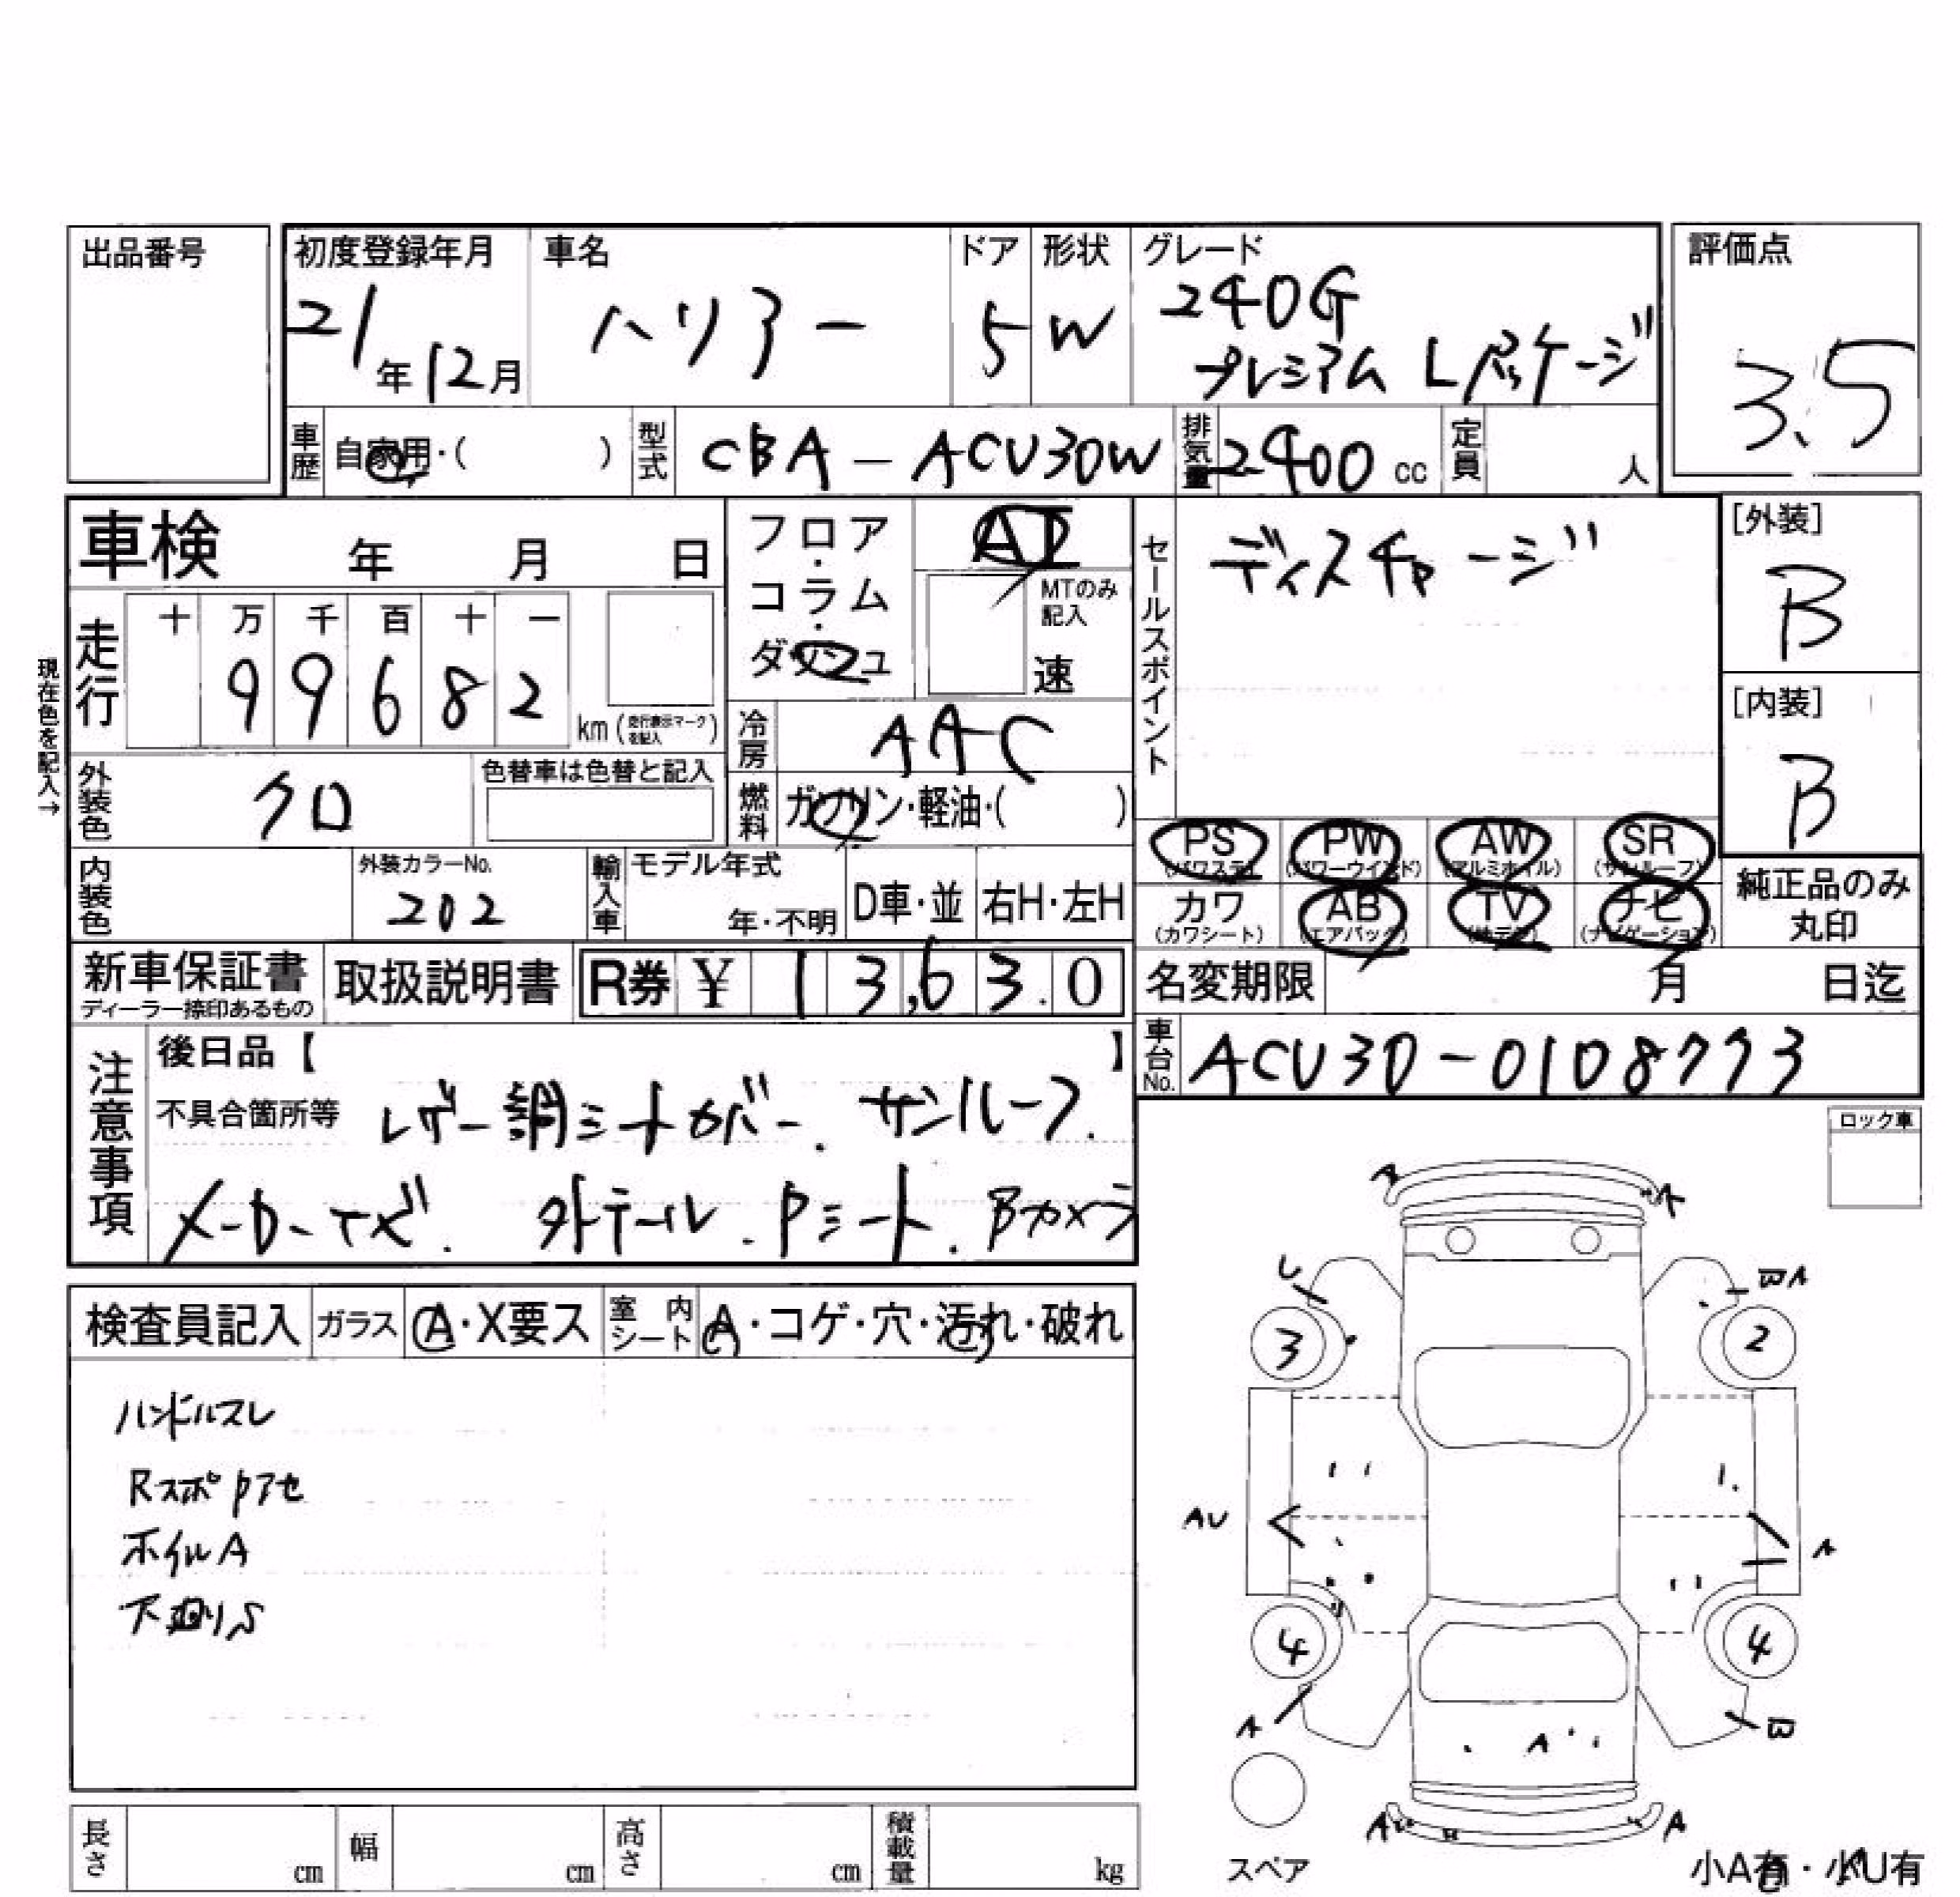 出品番号
初度登録年月 車名 ドア 形状 グレード 評価点
21年12月 ハリアー 5 W 240G
プレミアム Lパッケージ
3.5
車歴 自家用・( ) 型式 CBA-ACU30W 排気量 2400 cc 定員 人
車検 年 月 日
フロア・コラム・ダッシュ AT
MTのみ記入
速
セールスポイント ディスチャージ
[外装]
B
[内装]
B
現在色を記入→
走行 十 万 千 百 十 一
9 9 6 8 2 km (走行表示マークを記入)
冷房 AAC
外装色 クロ 色替車は色替と記入
燃料 ガソリン・軽油・( )
PS PW AW SR
(パワステ) (パワーウインド) (アルミホイル) (サンルーフ)
内装色 外装カラーNo. 202 輸入車 モデル年式 年・不明 D車・並 右H・左H
カワ AB TV ナビ
(カワシート) (エアバック) (ナビゲーション)
純正品のみ
丸印
新車保証書 取扱説明書 R券 ¥ 1 3,6 3.0
ディーラー捺印あるもの
名変期限 月 日迄
車台No. ACU30-0108773
注意事項
後日品【 】
不具合箇所等 レザー調シートカバー. サンルーフ.
. Pシート. Bカメラ
ロック車
検査員記入 ガラス A・X要ス 室内シート A・コゲ・穴・汚れ・破れ
ハンドルスレ
Rスポ色アセ
ホイルA
下廻りS
A A
U W A
3 2
AU A
4 4
A W
A
A A
スペア
小A有・小U有
長さ cm 幅 cm 高さ cm 積載量 kg